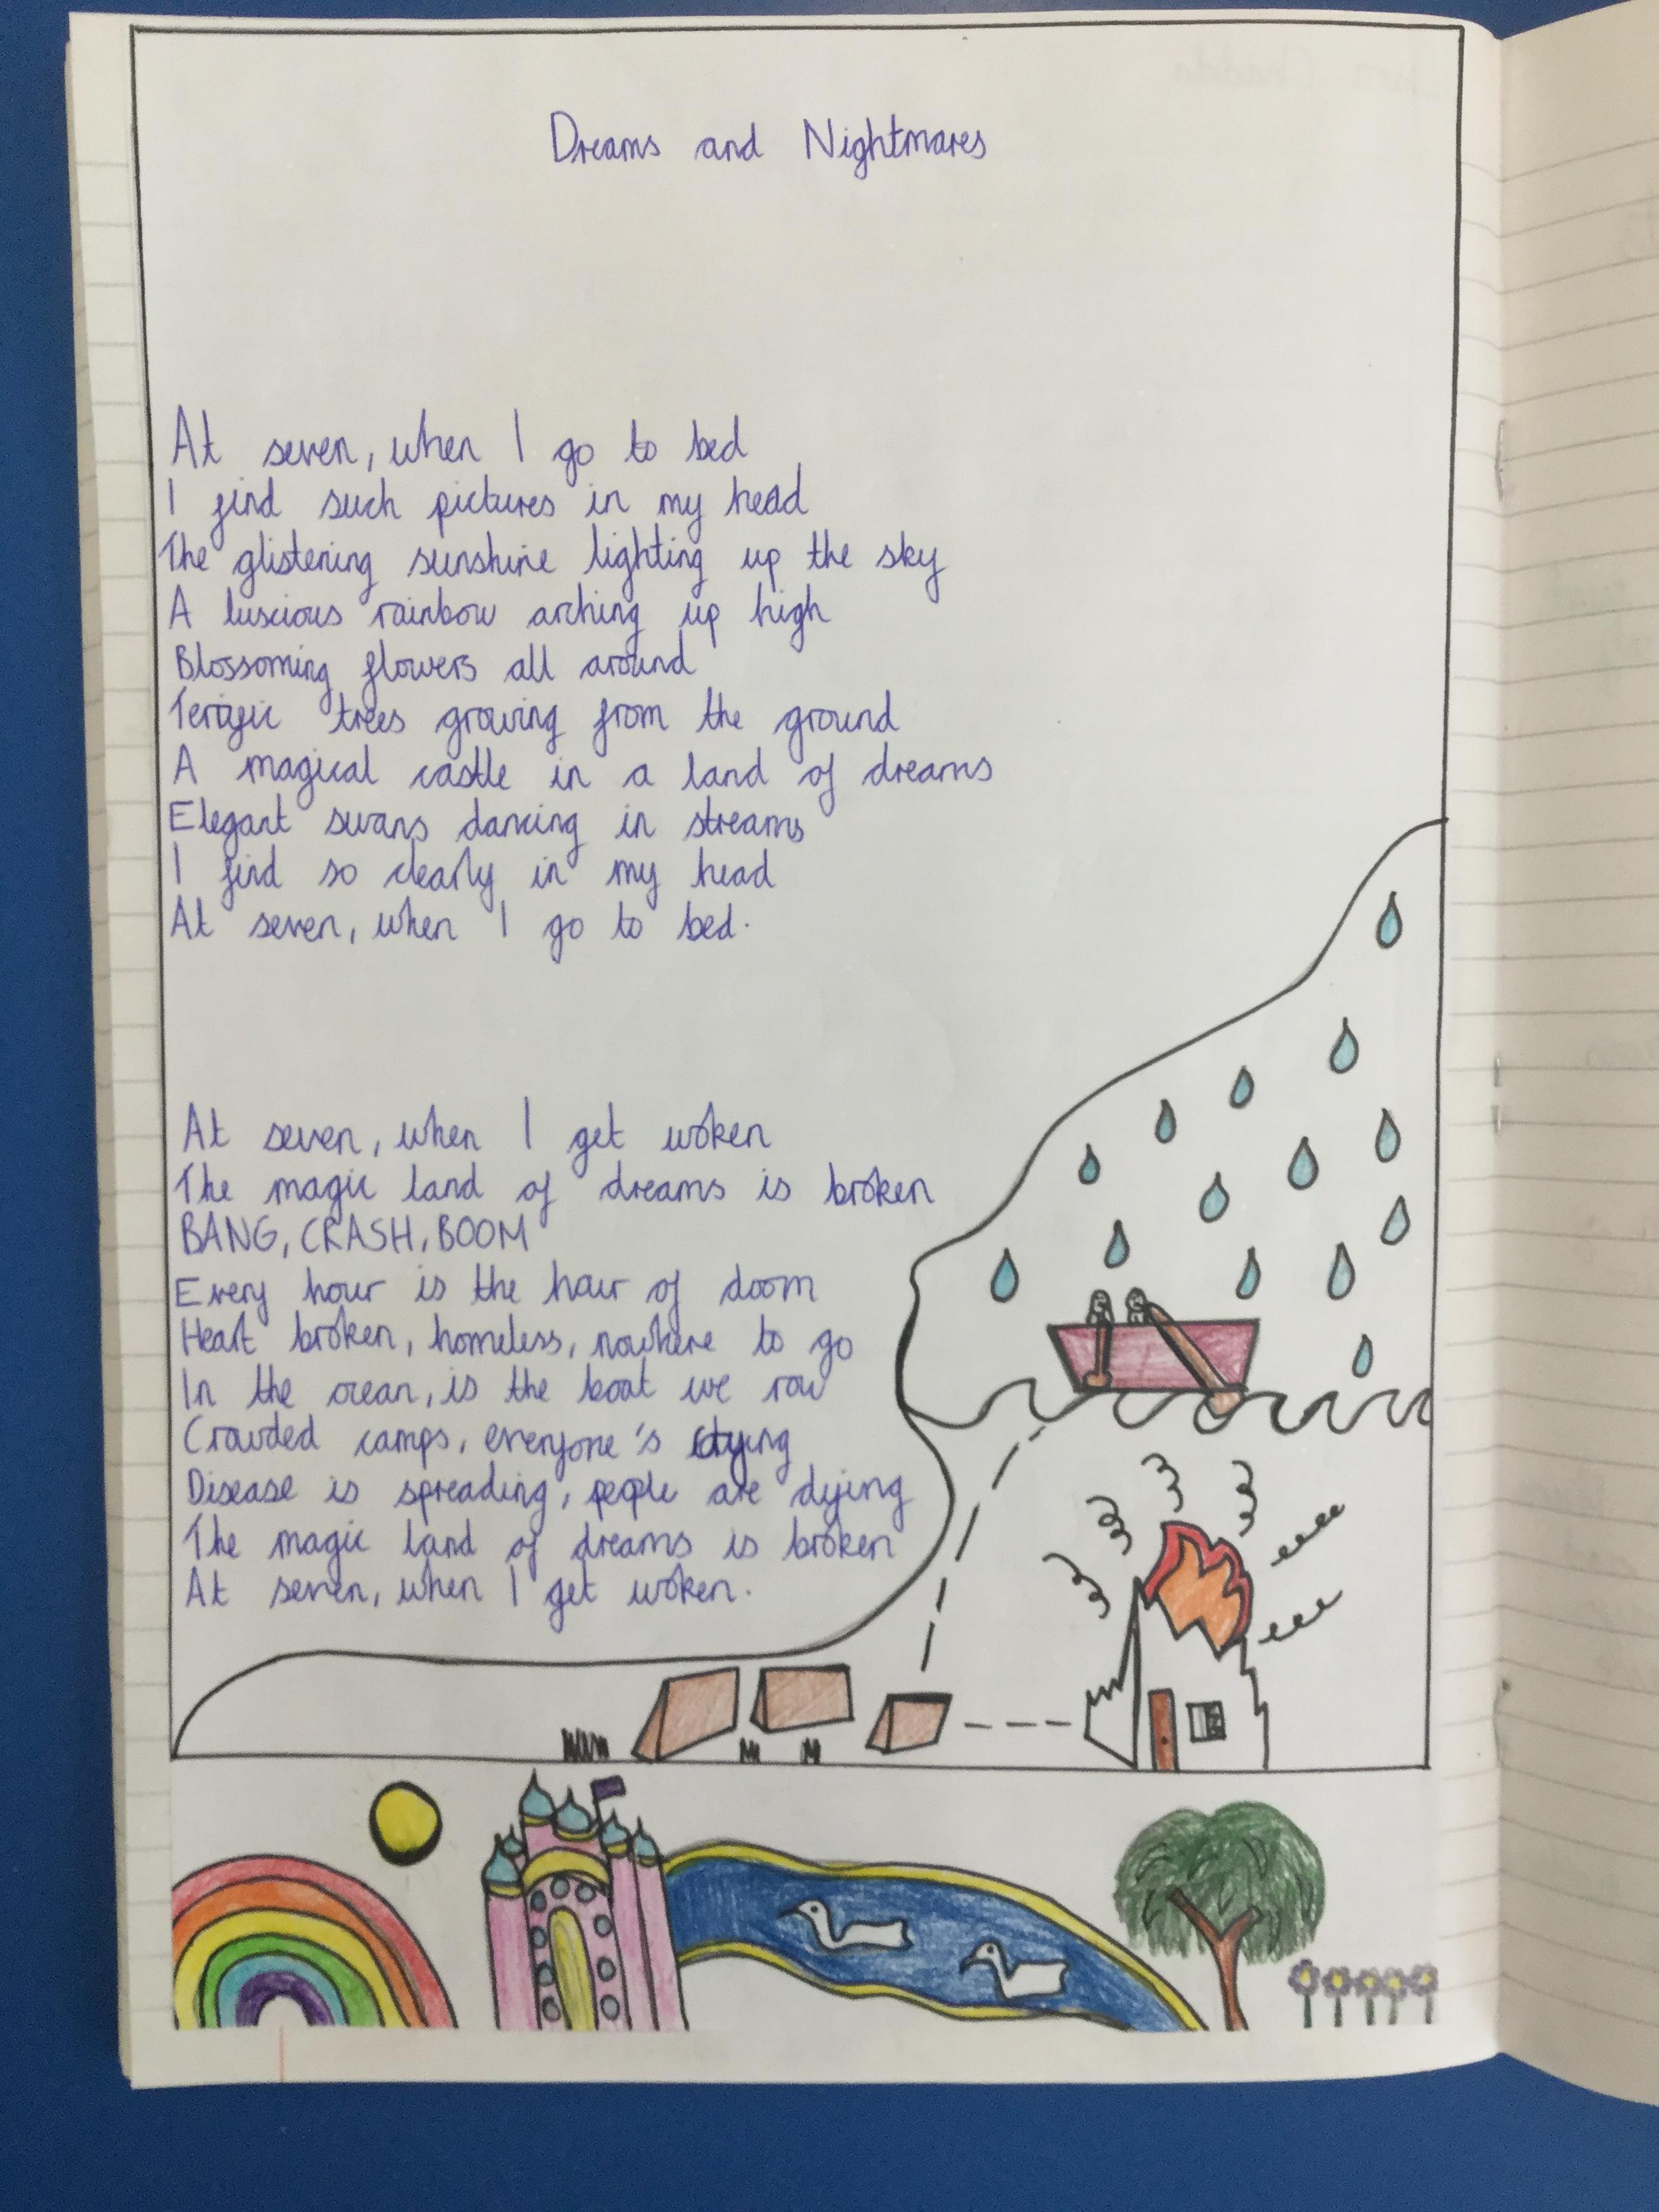 Dreams and Nightmares
At seven, when I go to bed
I find such pictures in my head
The glistening sunshine lighting up the sky
A luscious rainbow arching up high
Blossoming flowers all around
Terrific trees growing from the ground
A magical castle in a land of dreams
Elegant swans dancing in streams
I find so clearly in my head
At seven, when I go to bed.
At seven, when I get woken
The magic land of dreams is broken
BANG, CRASH, BOOM
Every hour is the hour of doom
Heart broken, homeless, nowhere to go
In the ocean, is the boat we row
Crowded camps, everyone's crying
Disease is spreading, people are dying
The magic land of dreams is broken
At seven, when I get woken.